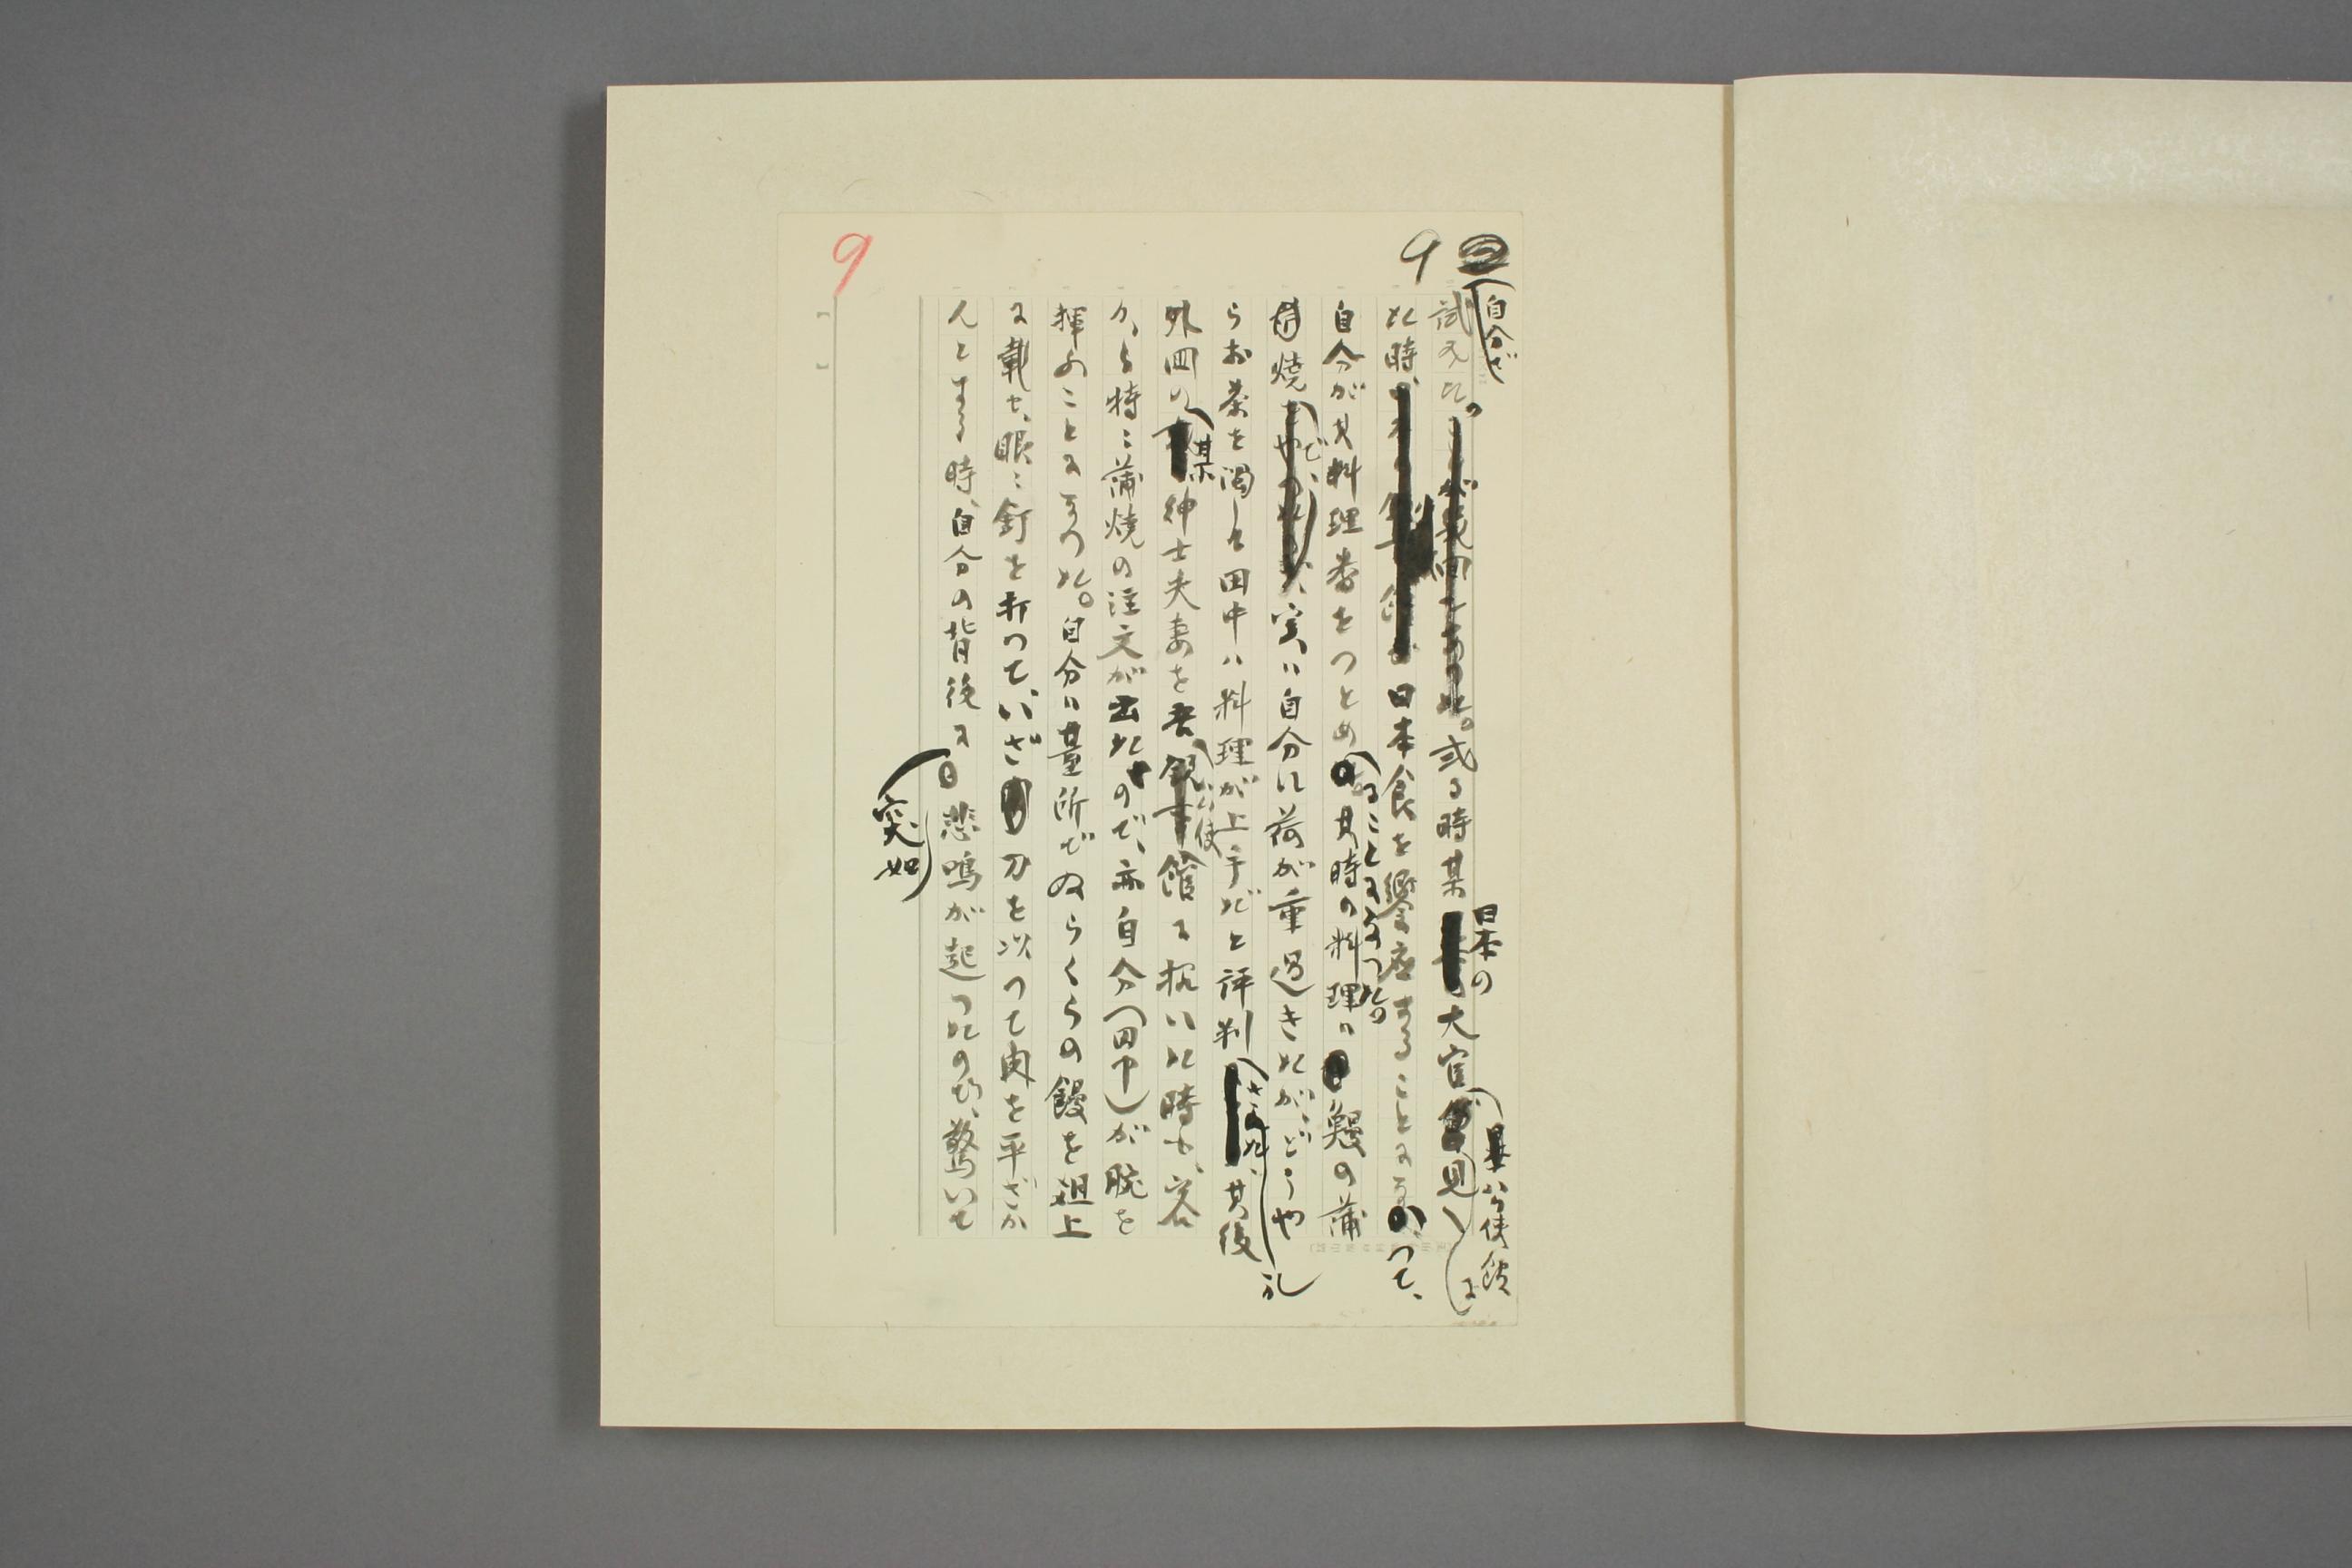 9
9
自分で試みた。或る時某日本の大官が某公使館に
見た時、日本食を饗応することになつて、
自分が其料理番をつとめることになつた。其時の料理は鰻の蒲
焼で、実は自分には荷が重過ぎたが、どうや
らお茶を濁して田中は料理が上手だと評判された。其後
外国の某紳士夫妻を吾公使館に招いた時も、客
から特に蒲焼の注文が出たので、亦自分(田中)が腕を
揮ふことになつた。自分は台所でぬらくらの鰻を俎上
に載せ、眼に釘を打つて、いざ刀を以つて肉を平がか
んとする時、自分の背後に突如悲鳴が起つたので、驚いて